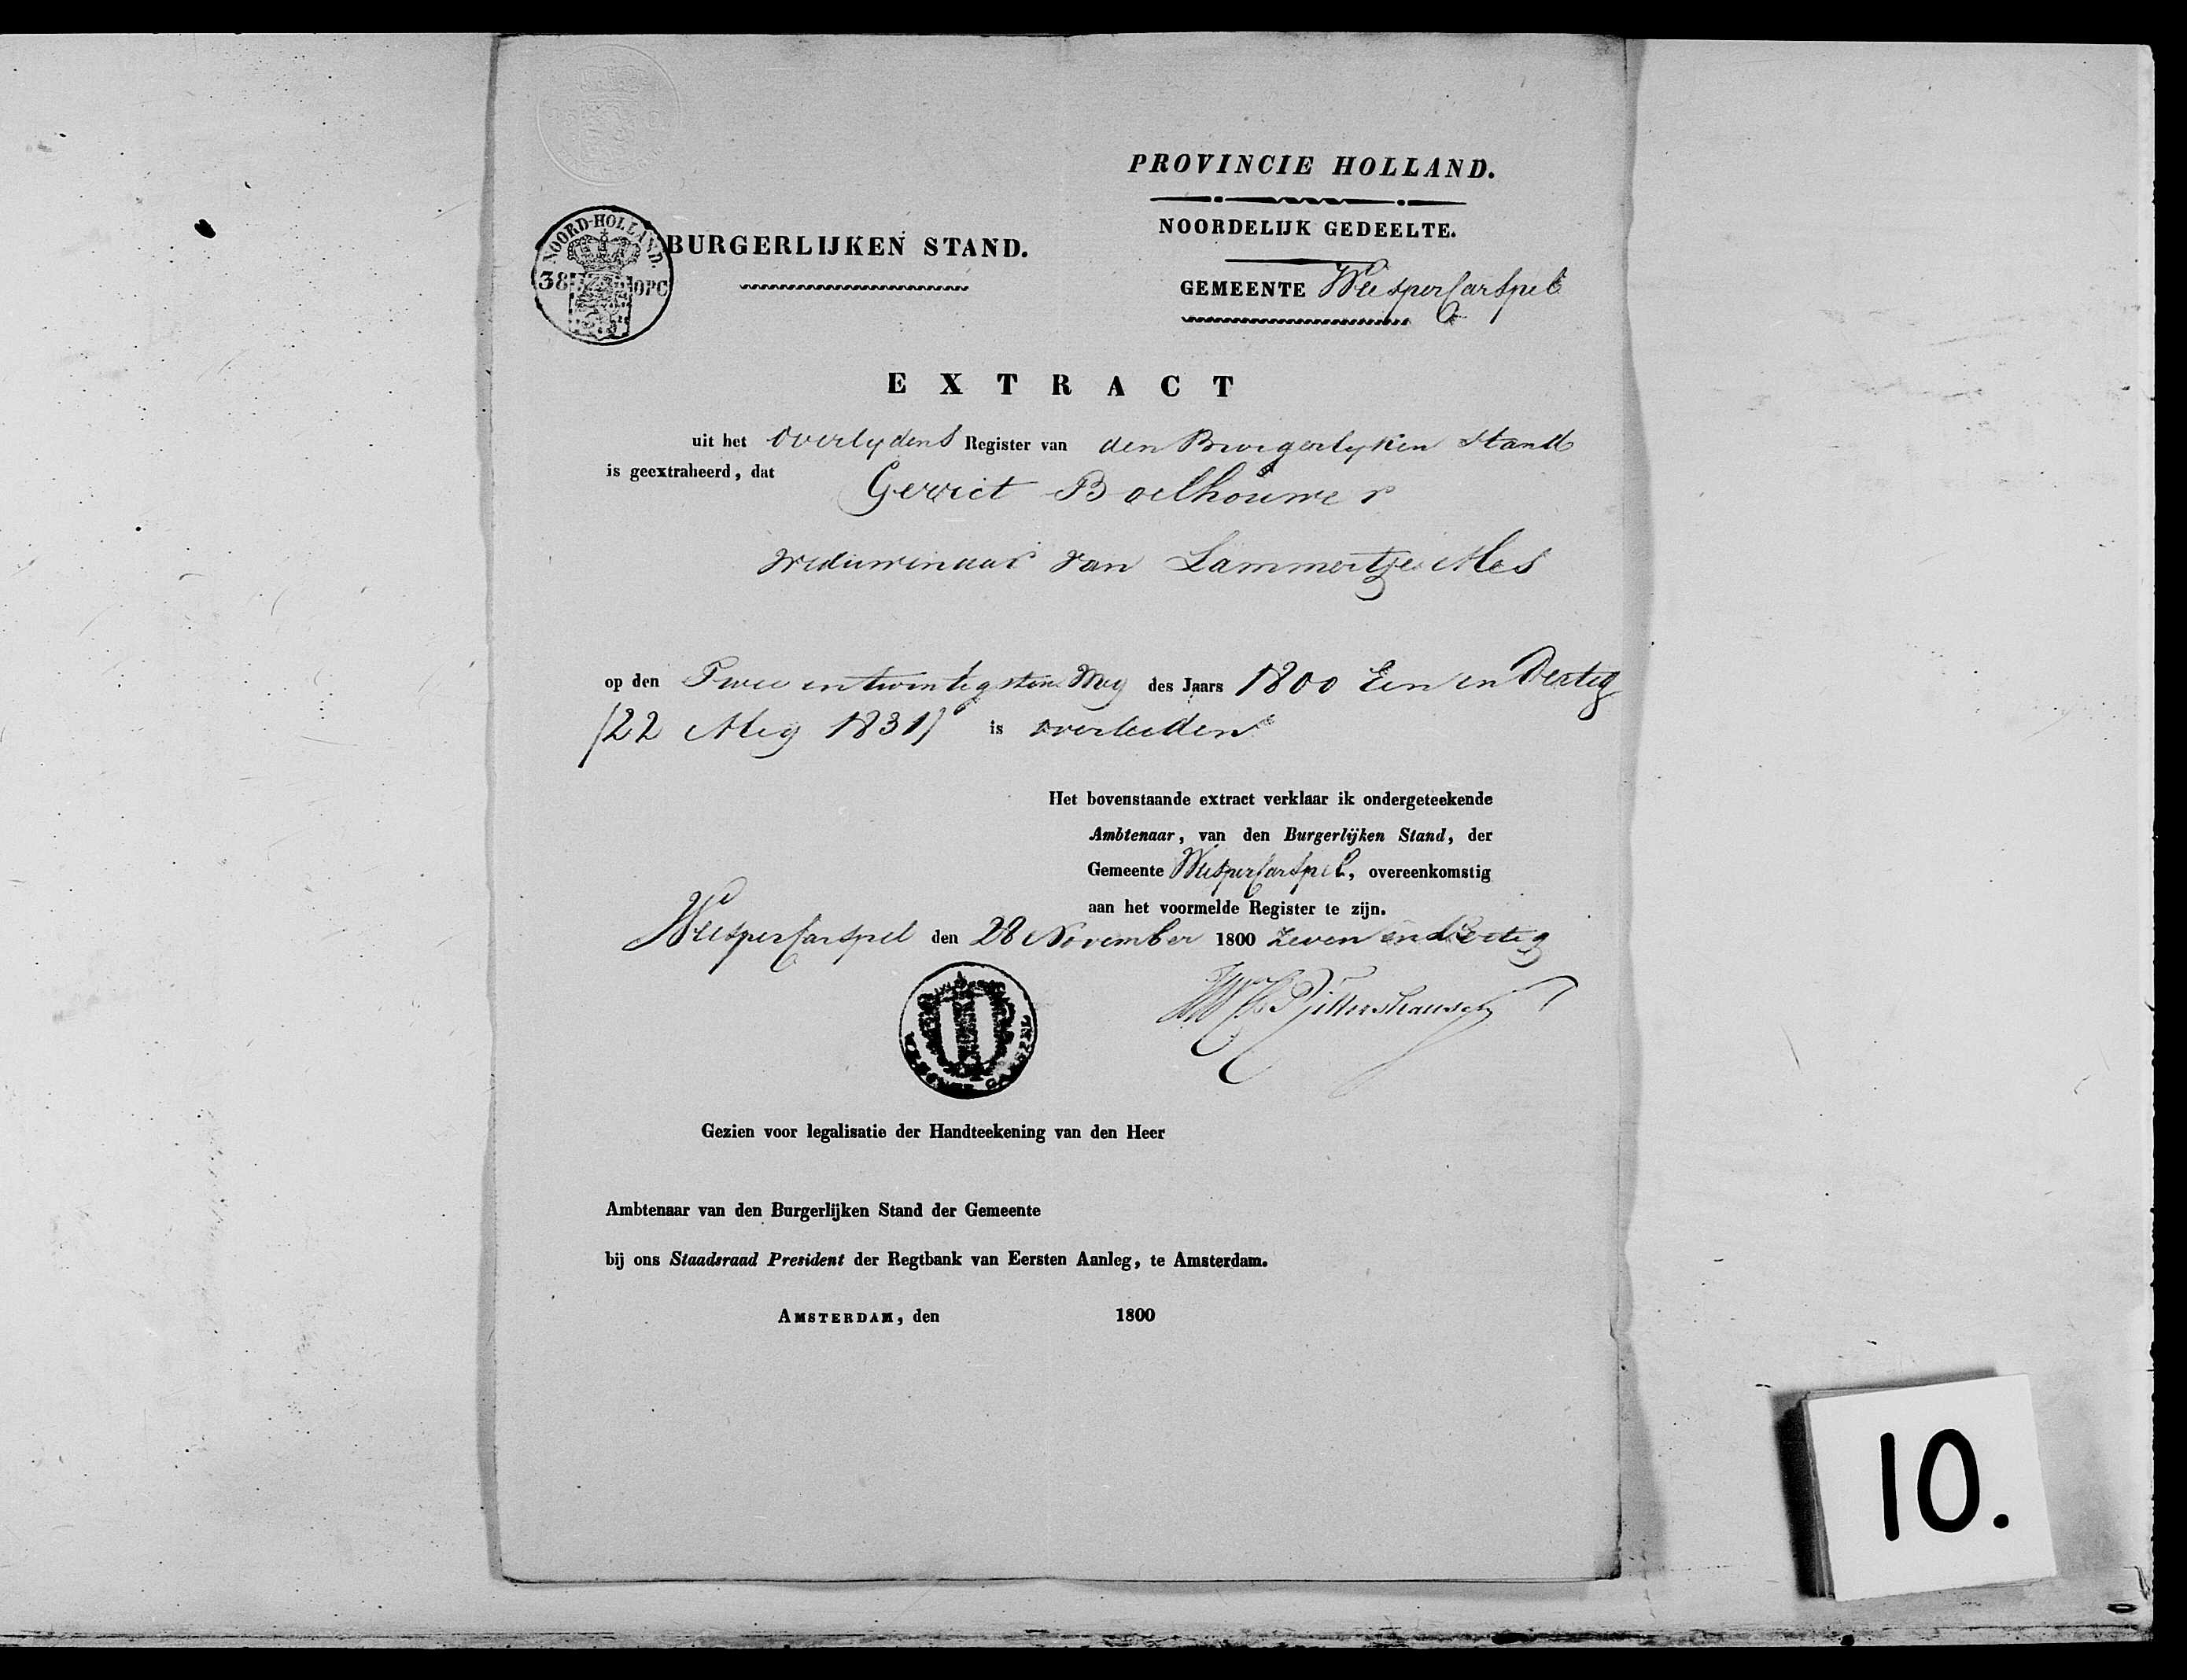 PROVINCIE HOLLAND.
NOORDELIJK GEDEELTE.
NOORD-HOLLAND.
38 OPC
BURGERLIJKEN STAND.
GEMEENTE Weespercarspel
EXTRACT
uit het Overlydens Register van den Burgerlyken Stand
is geextraheerd, dat
Gerrit Boelhouwer
weduwenaar van Lammertje Mes
op den Twee en twintigsten Mey des Jaars 1800 Een en Dertig
/22 Mey 1831/ is overleden
Het bovenstaande extract verklaar ik ondergeteekende
Ambtenaar, van den Burgerlijken Stand, der
Gemeente Weespercarspel, overeenkomstig
aan het voormelde Register te zijn.
Weespercarspel den 28 November 1800 zeven en dertig
WEESPER CARSPEL
Gezien voor legalisatie der Handteekening van den Heer
Ambtenaar van den Burgerlijken Stand der Gemeente
bij ons Staadsraad President der Regtbank van Eersten Aanleg, te Amsterdam.
AMSTERDAM, den 1800
10.